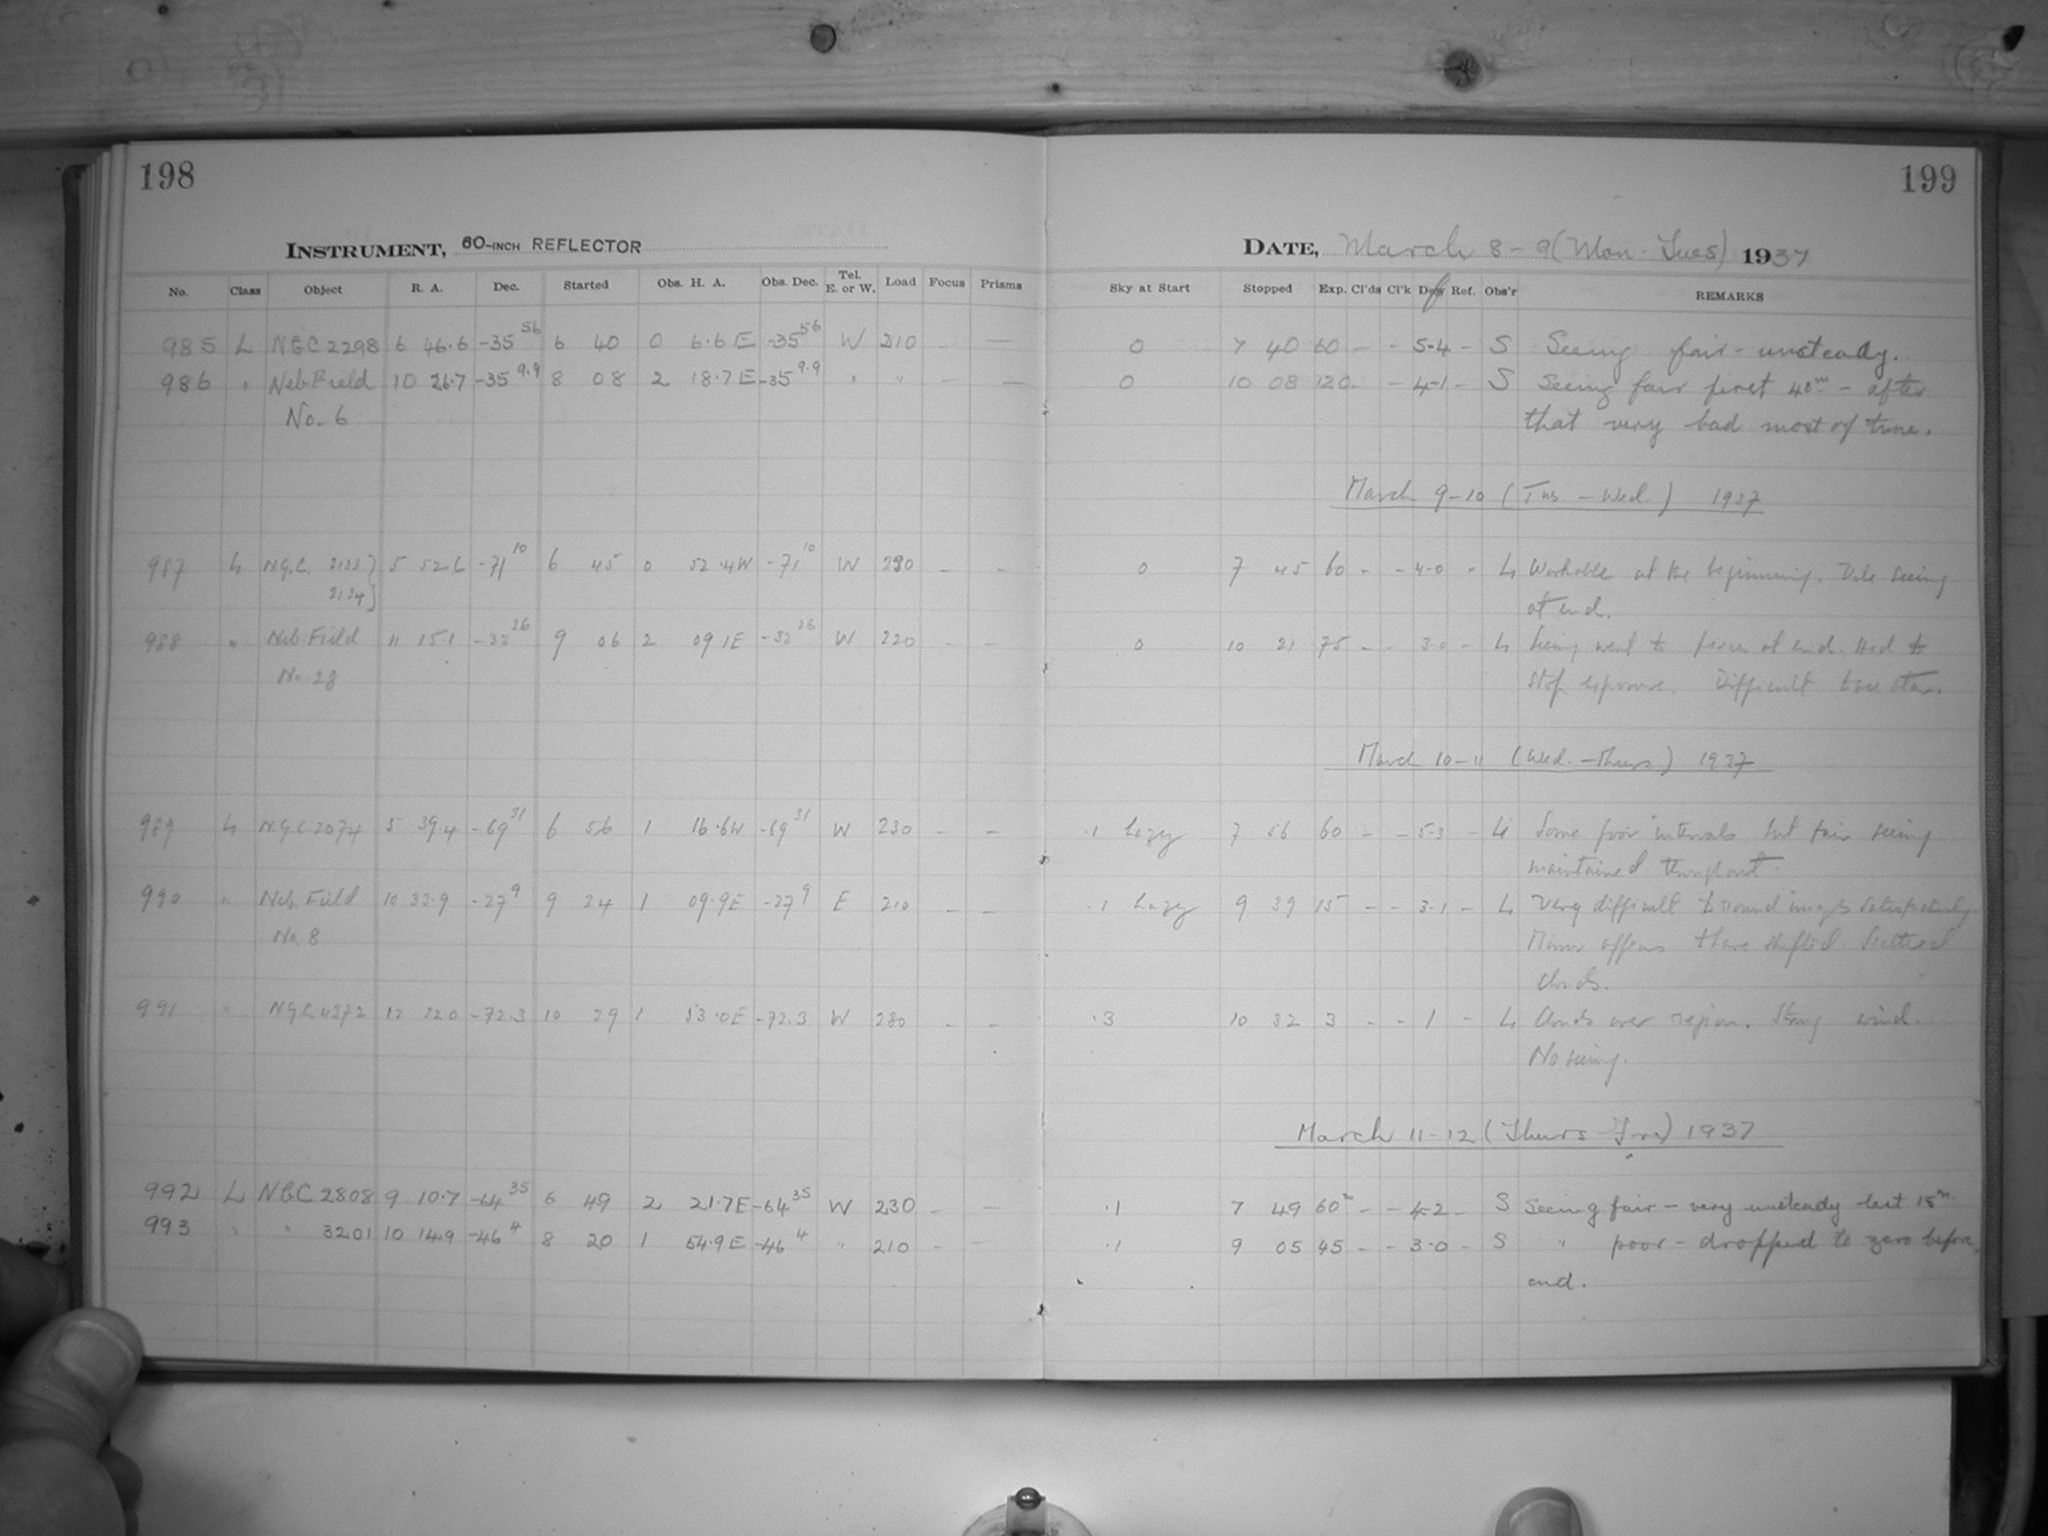 198
199
INSTRUMENT, 60-INCH REFLECTOR
DATE, March 8-9 (Mon-Tues) 1937
No. Class Object R. A. Dec. Started Obs. H. A. Obs. Dec. Tel. E. or W. Load Focus Prisms
Sky at Start Stopped Exp. Cl'ds Cl'k Def Ref. Obs'r REMARKS
985 L NGC 2298 6 46.6 -35 56 6 40 0 6.6 E -35 56 W 210 - - 0 7 40 60 - - 5-4 - S Seeing fair - unsteady.
986 " Neb. Field 10 26.7 -35 9.9 8 08 2 18.7 E -35 9.9 " " - - 0 10 08 120 - - 4-1 - S Seeing fair first 40m - after
No. 6 that very bad most of time.
March 9-10 (Tues. - Wed.) 1937
987 L N.G.C. 2133 } 5 52.6 -71 10 6 45 0 52.4W -71 10 W 230 - - 0 7 45 60 - - 4-0 - L Workable at the beginning. Vile seeing
2134 } at end.
988 " Neb. Field 11 15.1 -32 26 9 06 2 09.1E -32 26 W 220 - - 0 10 21 75 - - 3-0 - L Seeing went to pieces at end. Had to
No. 28 stop exposure. Difficult to see star.
March 10-11 (Wed. - Thurs) 1937
989 L N.G.C. 2074 5 39.4 -69 31 6 56 1 16.6W -69 31 W 230 - - .1 hazy 7 56 60 - - 5-3 - L Some poor intervals but fair seeing
maintained throughout.
990 " Neb. Field 10 33.9 -27 9 9 24 1 09.9E -27 9 E 210 - - .1 hazy 9 39 15 - - 3-1 - L Very difficult to round images satisfactorily.
No. 8 Mirror appears to have shifted. Scattered
clouds.
991 " N.G.C. 4372 12 22.0 -72.3 10 29 1 53.0E -72.3 W 230 - - .3 10 32 3 - - 1 - L Clouds over region. Strong wind.
No seeing.
March 11-12 (Thurs-Fri) 1937
992 L NGC 2808 9 10.7 -64 35 6 49 2 21.7E -64 35 W 230 - - .1 7 49 60m - - 4-2 - S Seeing fair - very unsteady last 15m
993 " " 3201 10 14.9 -46 4 8 20 1 54.9 E -46 4 " 210 - - .1 9 05 45 - - 3-0 - S " poor - dropped to zero before
end.